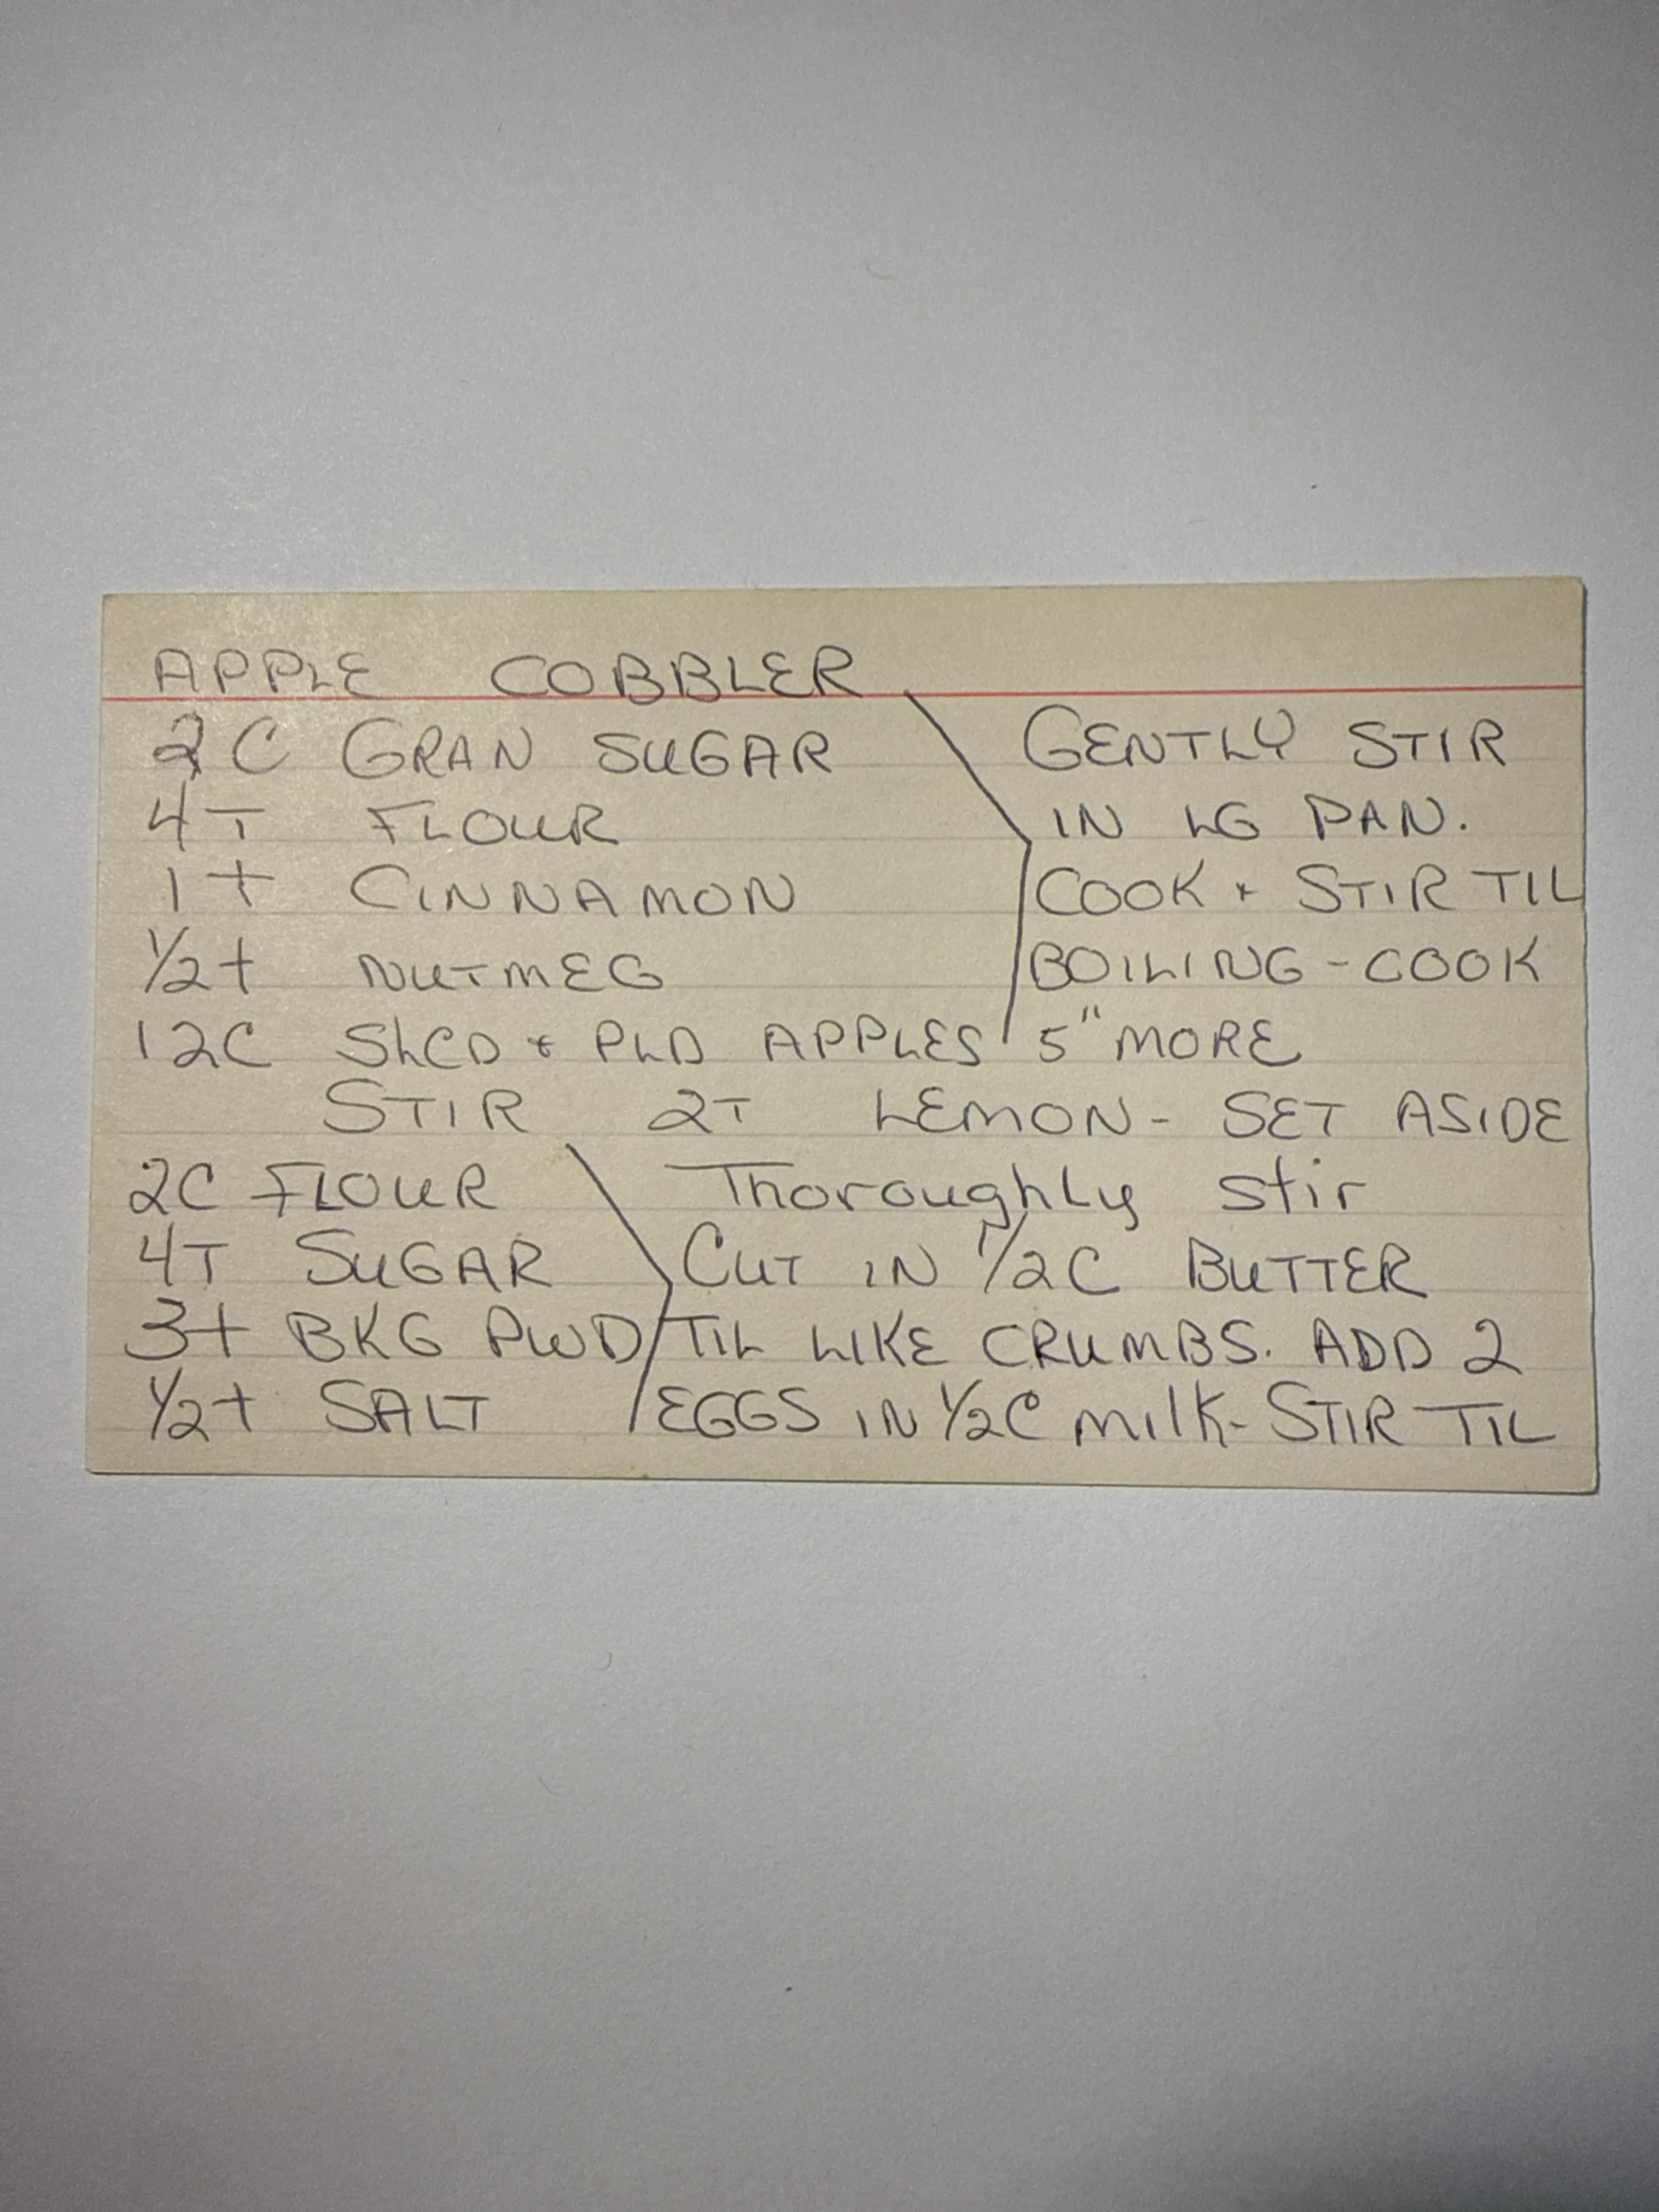 APPLE COBBLER
2C GRAN SUGAR GENTLY STIR
4T FLOUR IN LG PAN.
1t CINNAMON COOK + STIR TIL
1/2t NUTMEG BOILING - COOK
12C SLCD + PLD APPLES 5" MORE
STIR 2T LEMON - SET ASIDE
2C FLOUR Thoroughly stir
4T SUGAR CUT IN 1/2C BUTTER
3t BKG PWD TIL LIKE CRUMBS. ADD 2
1/2t SALT EGGS IN 1/2C milk - STIR TIL